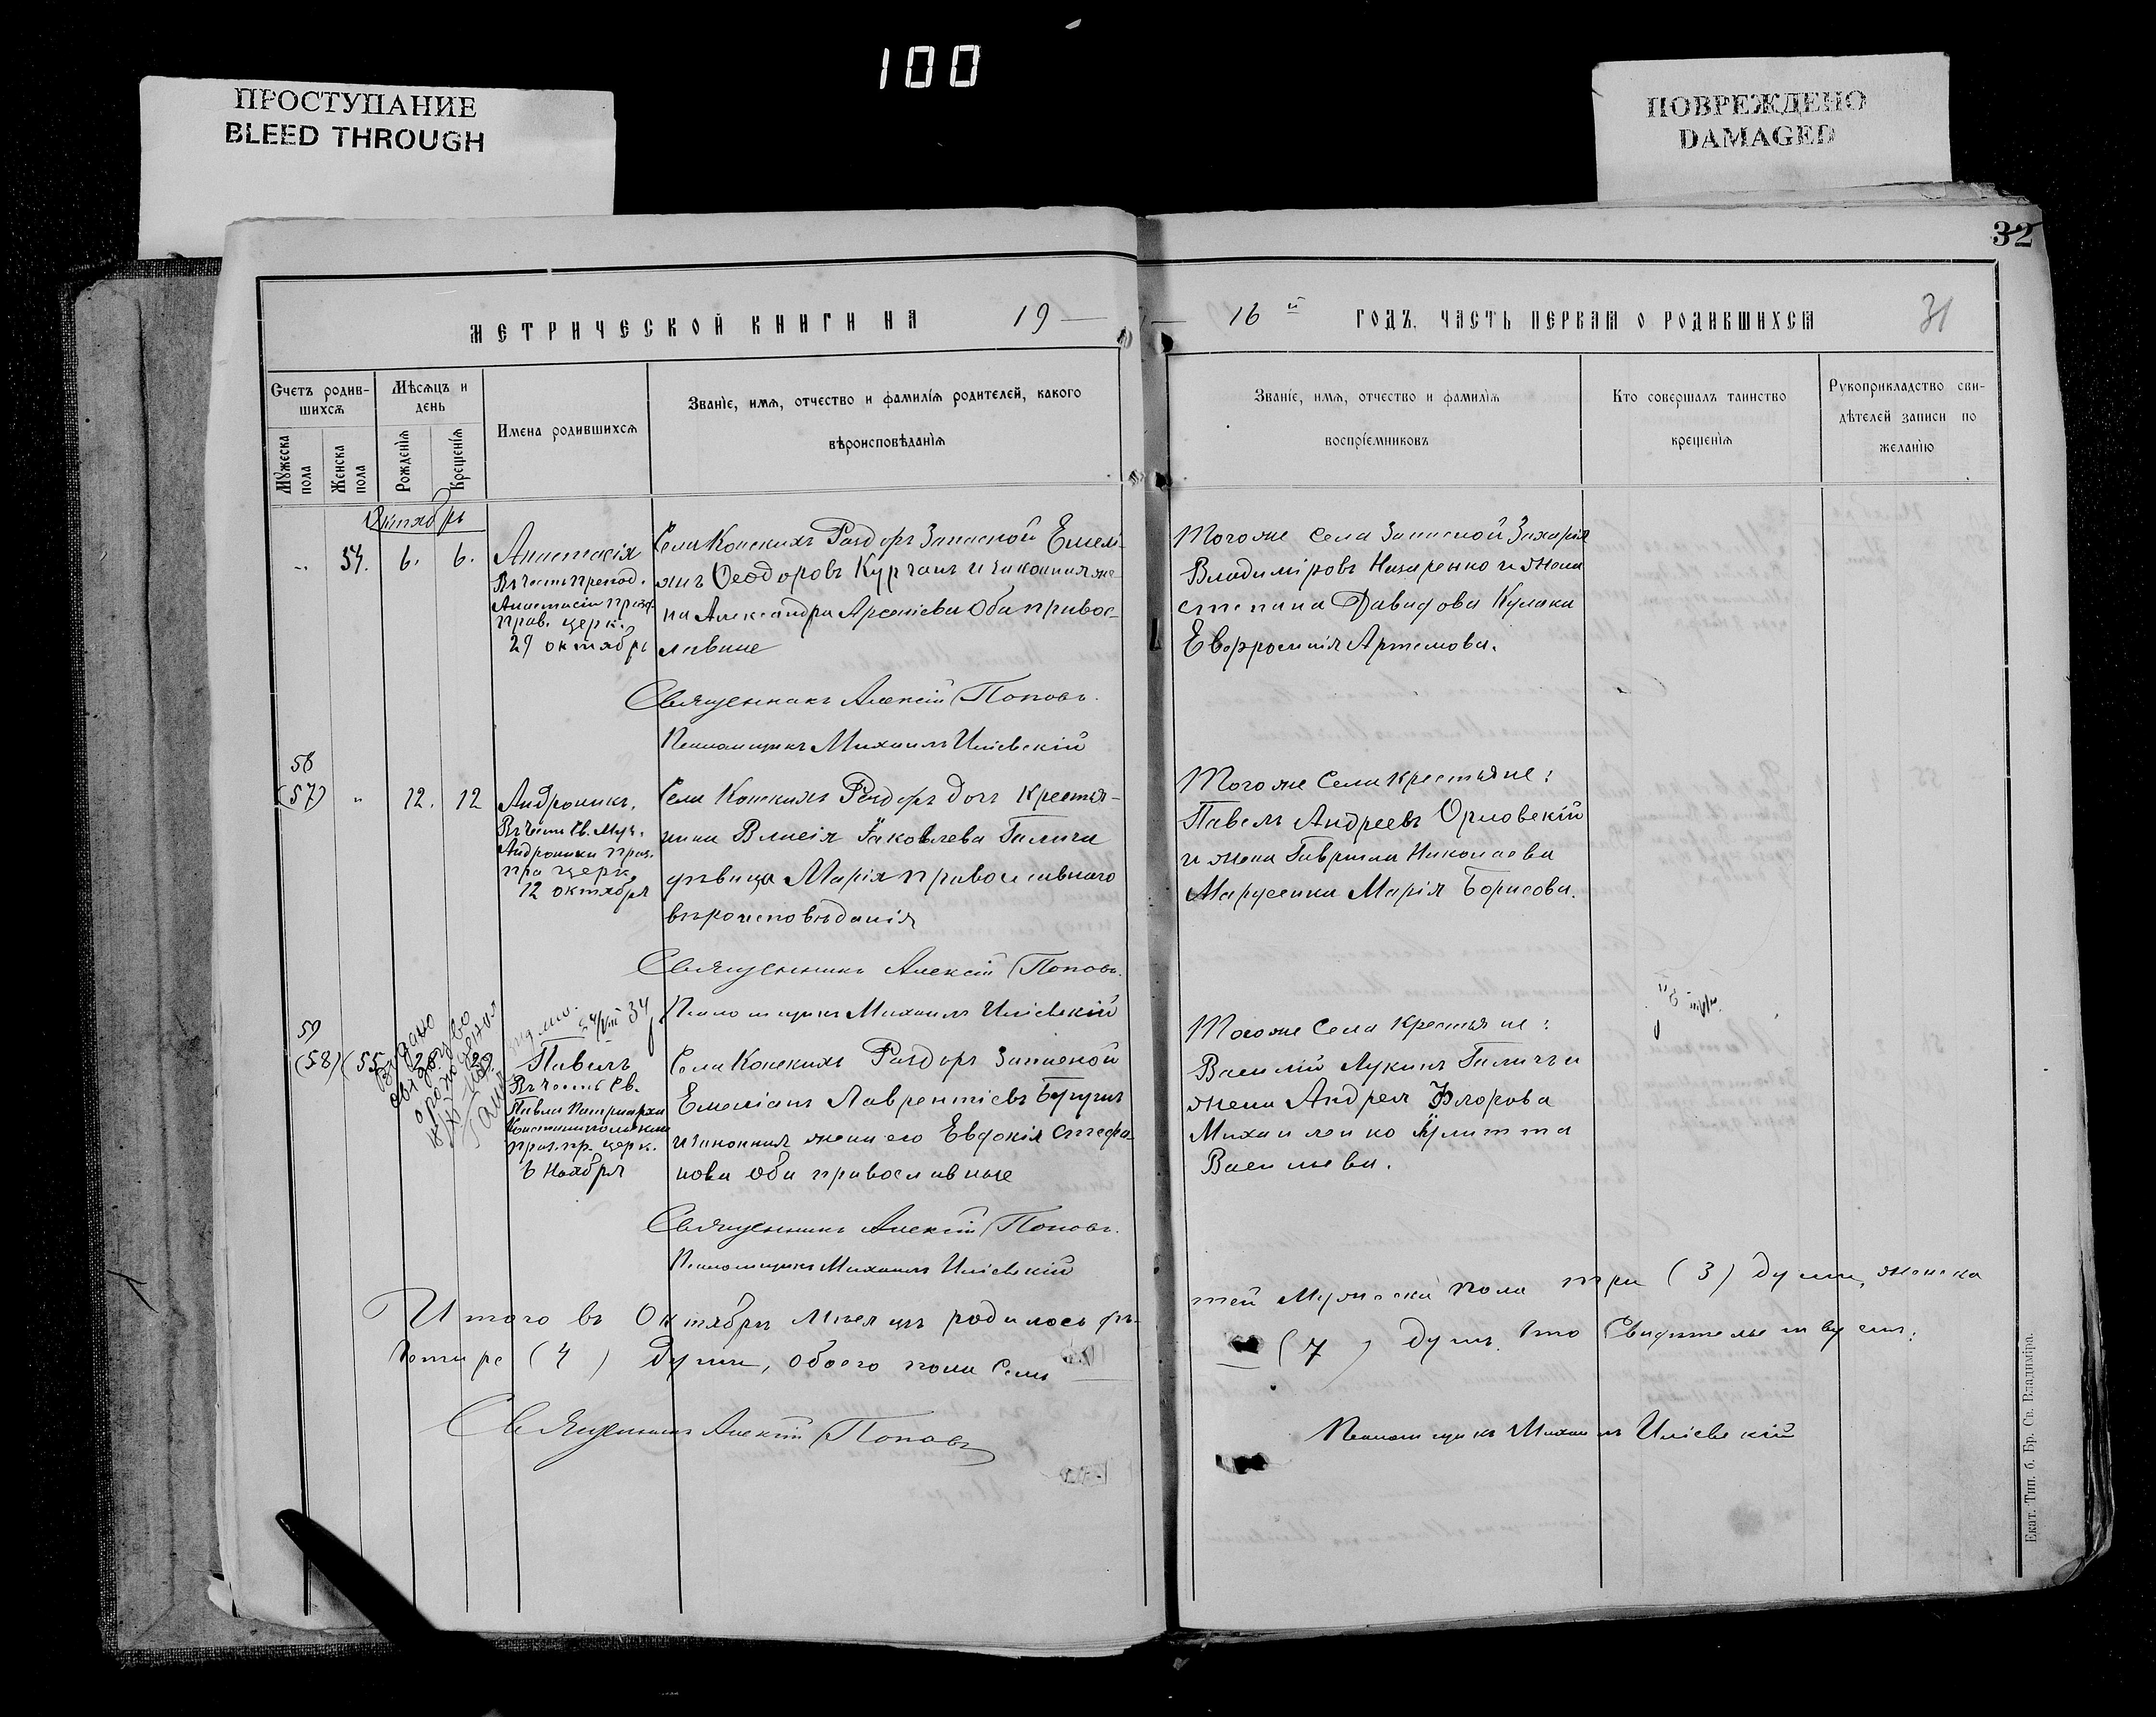 100
ПРОСТУПАНИЕ
BLEED THROUGH
ПОВРЕЖДЕНО
DAMAGED
32
МЕТРИЧЕСКОЙ КНИГИ НА 19
16 й ГОДЪ, ЧАСТЬ ПЕРВАЯ О РОДИВШИХСЯ
31
Счетъ родив-
шихся
Мужеска
пола
Женска
пола
Мѣсяцъ и
день
Рожденія
Крещенія
Имена родившихся
Званіе, имя, отчество и фамилія родителей, какого
вѣроисповѣданія
Званіе, имя, отчество и фамилія
воспріемниковъ
Кто совершалъ таинство
крещенія
Рукоприкладство сви-
дѣтелей записи по
желанію
Октябрь
54. 6. 6.
Анастасія
Въ честь препод.
Анастасіи празд.
прав. церк.
29 октябрь
Села Конскихъ Раздоръ Запасной Емелі-
янъ Ѳеодоровъ Курганъ и законная же-
на Александра Арсеніева оба право-
славные
Священникъ Алексій Поповъ.
Псаломщикъ Михаилъ Иліевскій
Тогоже села Запасной Захарія
Владиміровъ Назаренко и жена
Степана Давидова Кулака
Евфросинія Артемова.
58
(57) " 12. 12
Андроникъ.
Въ честь Св. Муч.
Андроника праз.
пра церк.
12 октября
Села Конскихъ Раздоръ дочь крестья-
нина Власія Іаковлева Галича
дѣвица Марія православнаго
вѣроисповѣданія
Священникъ Алексій Поповъ.
Псаломщикъ Михаилъ Иліевскій
Тогоже Села крестьяне:
Павелъ Андреевъ Орловскій
и жена Гавриила Николаева
Марусенка Марія Борисова.
59
(58) (55
Выдано
свид. о
рожденія
34
Павелъ
Въ честь Св.
Павла Патріарха
Константинопольскаго
праз. пр. церк.
6 Ноября
Села Конскихъ Раздоръ Запасной
Емеліанъ Лаврентіевъ
и законная жена его Евдокія Стефа-
нова оба православные
Священникъ Алексій Поповъ.
Псаломщикъ Михаилъ Иліевскій
Тогоже Села крестьяне:
Василій Лукинъ Галичъ и
жена Андрея Флорова
Михайленко Іулитта
Васильева.
Итого въ Октябрѣ мѣсяцѣ родилось дѣ-
тей Мужеска пола три (3) души, женска
четыре (4) души, обоего пола семь
(7) душъ. Что Свидѣтельствуемъ:
Священникъ Алексій Поповъ
Псаломщикъ Михаилъ Иліевскій
Екат. Тип. б. Бр. Св. Владиміра.